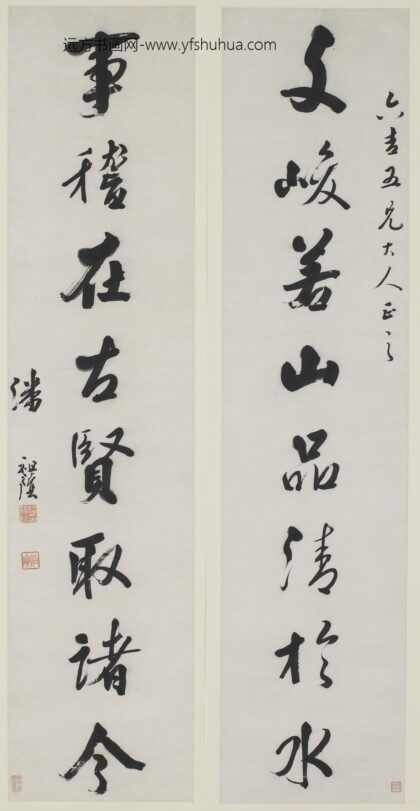 远方书画网-www.yfshuhua.com
六吉五兄大人正之
文峻若山品清於水
事稽在古賢取諸今
潘祖蔭